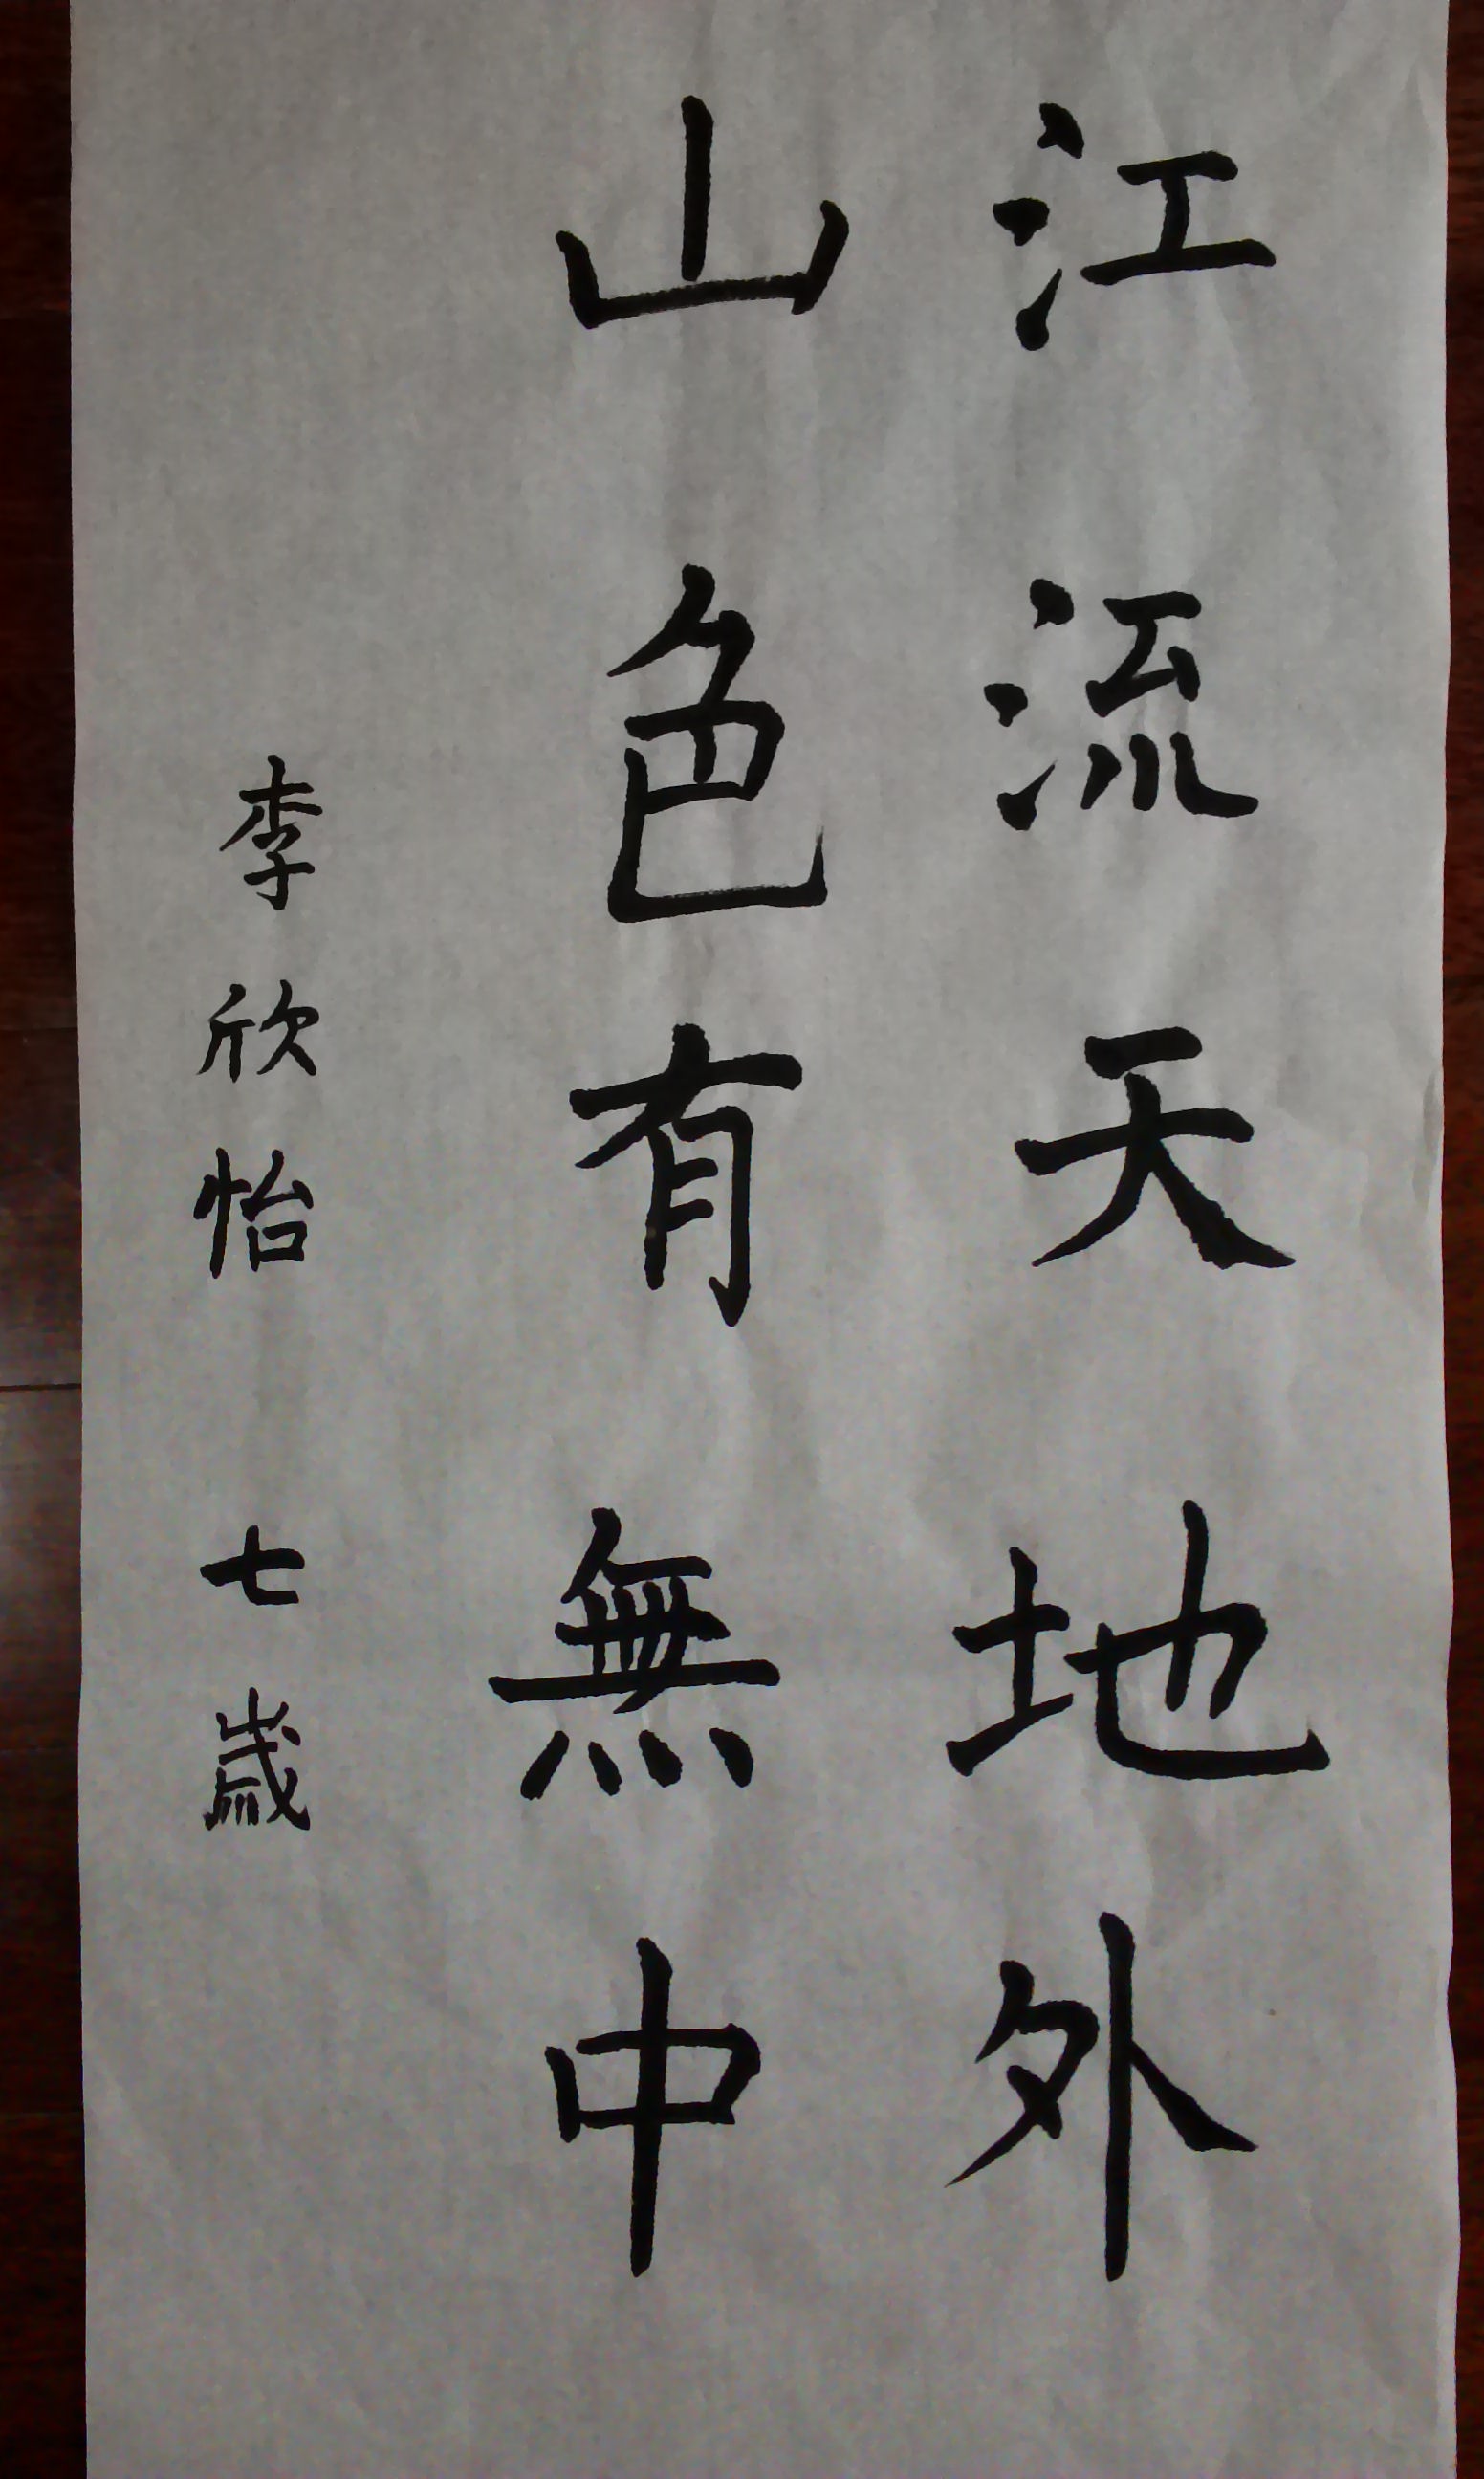 江流天地外
山色有無中
李欣怡 七歲